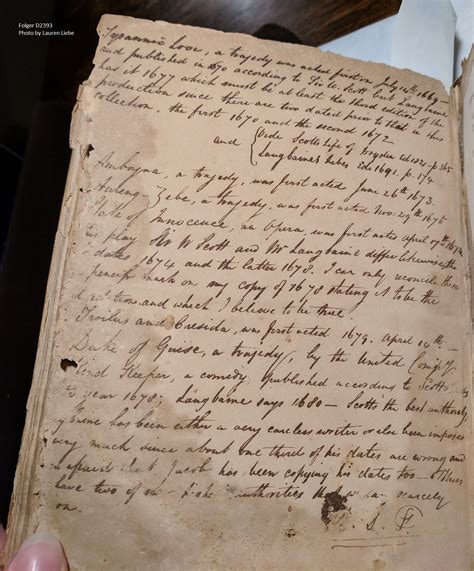 Folger D2393
Photo by Lauren Liebe
Tyrannic Love, a tragedy was acted first on July 14th 1669-
and published in 1670 according to Sir W. Scott but Langbaine
has it 1677 which must be at least the third edition of the
production since there are two dated prior to that in this
collection, the first 1670 and the second 1672
and { Vide Scotts life of Dryden Ed 1821- p. 365
Langbaine's lives Edn 1691. p. 174
Amboyna, a tragedy, was first acted June 26th 1673.
Aureng-Zebe, a tragedy, was first acted Nov. 29th 1675
State of Innocence, an Opera, was first acted April 17th 1674
his play Sir W Scott and Mr Langbaine differ likewise, the
dates 1674 and the latter 1678. I can only reconcile these
pencil mark on my copy of 1678 stating it to be the
edition and which I believe to be true.
Troilus and Cresida, was first acted 1679. April 14th -
Duke of Guise, a tragedy, by the United Compy
Kind Keeper, a comedy published according to Scotts
year 1678; Langbaine says 1680 - Scott's the best authority
has been either a very careless writer or else been imposed
very much since about one third of his dates are wrong and
Jacob has been copying his dates too - thus
have two of authorities that we can scarcely
on.